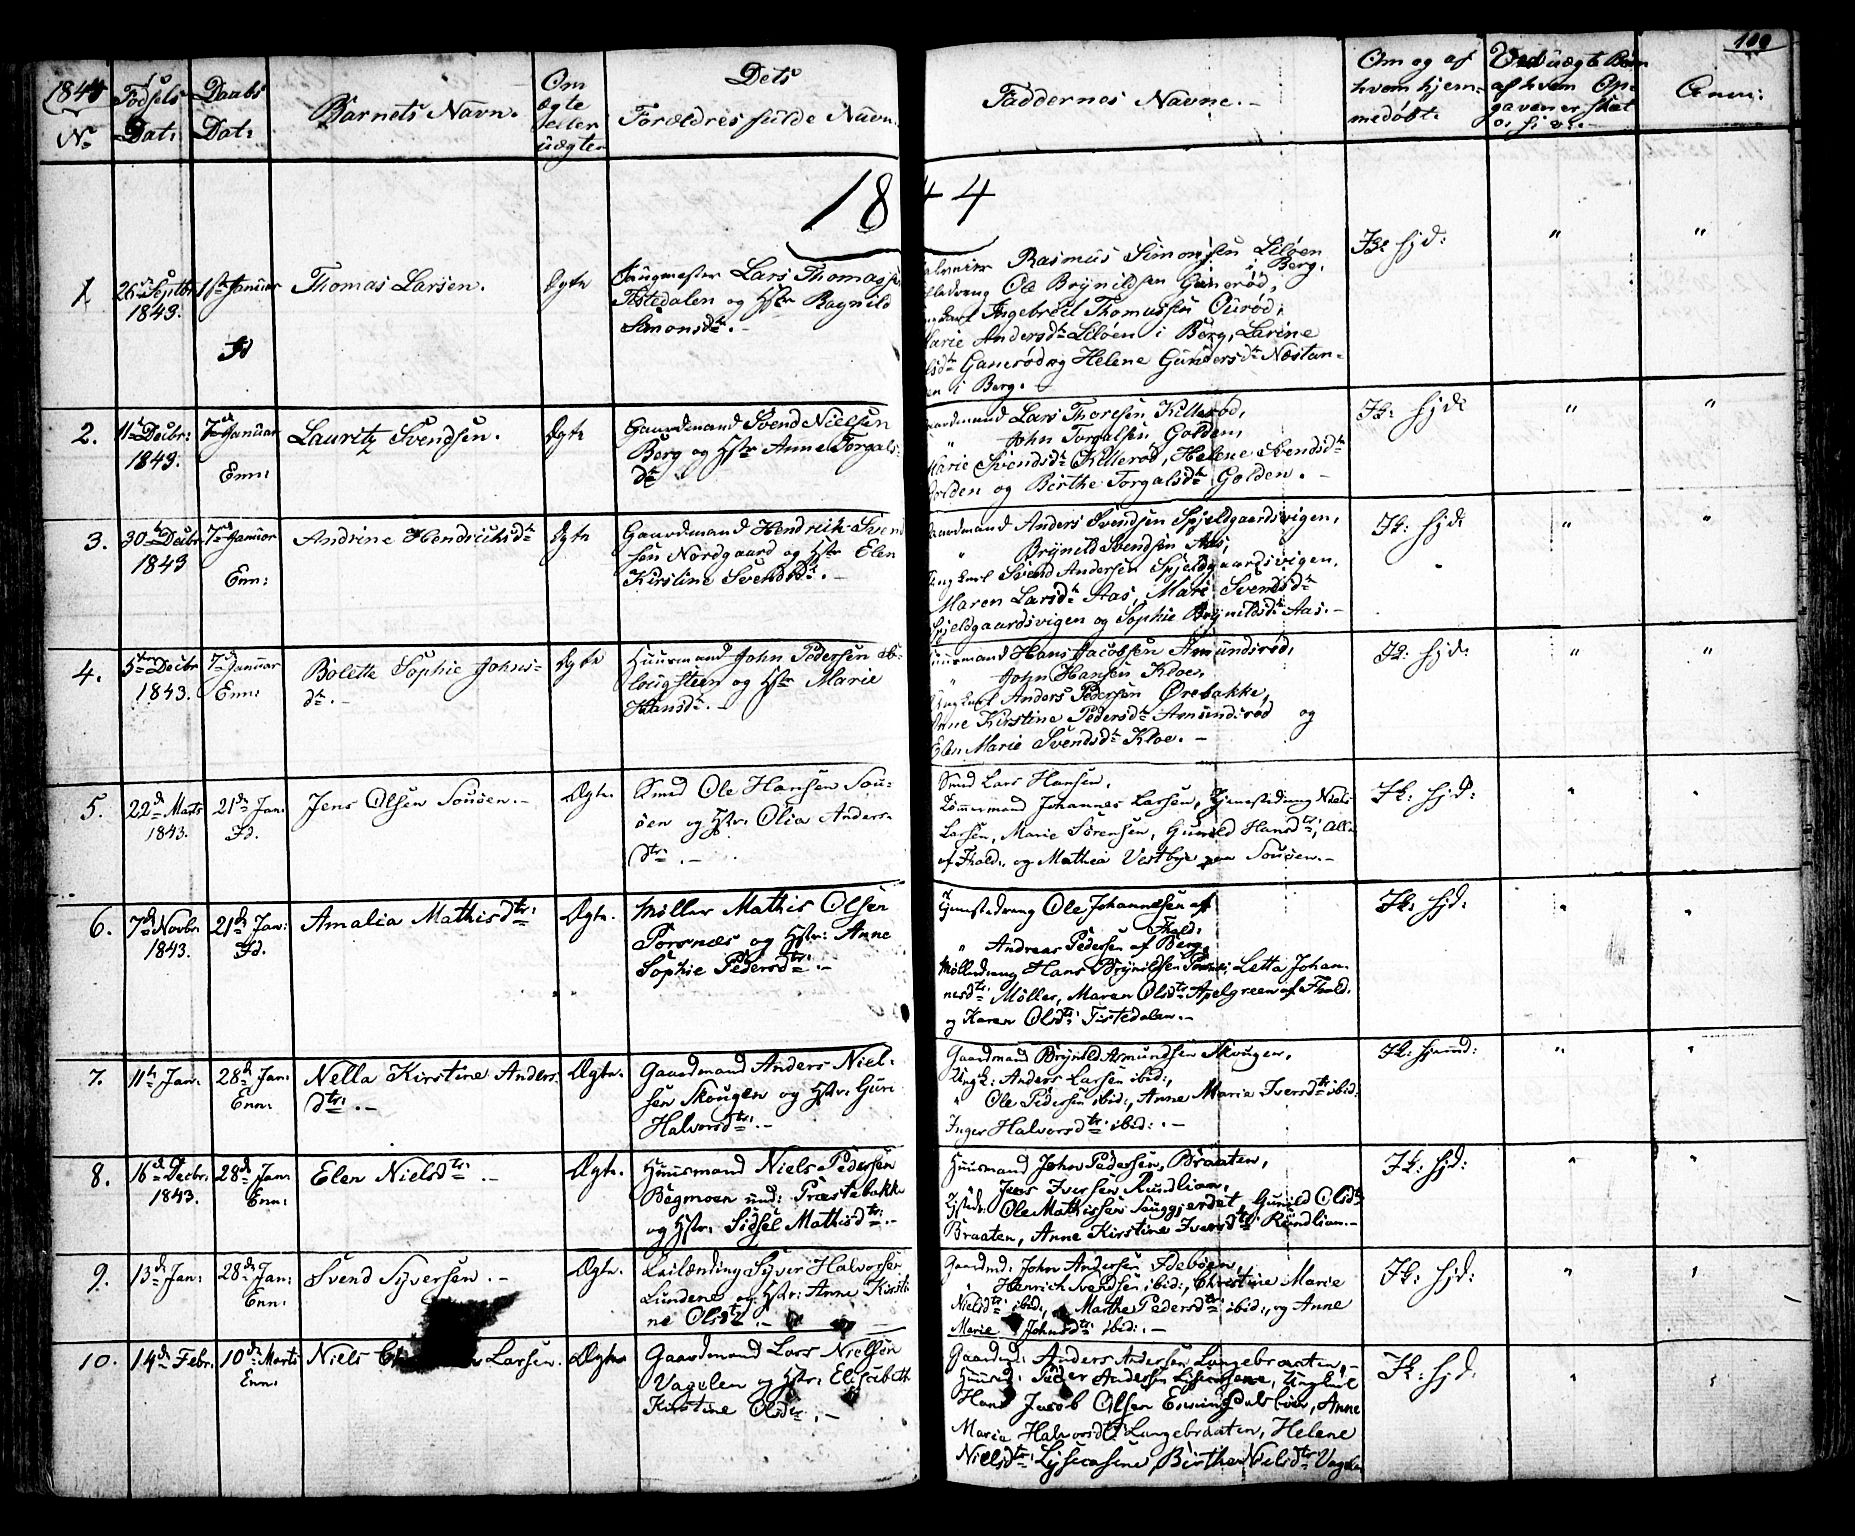 1844
No
Fødsels
Dat:
Daabs
Dat:
Barnets Navn.
Om
ægte
eller
uægte
Dets
Forældres fulde Navn
Faddernes Navne.
Om og af
hvem hjem-
medøbt
Ved uægte Børn
af hvem Op-
gaven er skat
Anm:
109
1844
1.
26 Septbr
1843.
1ste Januar
Id
Thomas Larsen.
Ægte
Lars Thomass
Tistedalen og Hstr Ragnild
Simonsdtr.
Rasmus Simonsen Liløen
i Berg.
Ole Brynildsen Ganerød,
Ingebrett Thomassen Ourød,
Marie Andersdtr Liløen i Berg, Larine
Ganerød og Helene Gundersdtr Næstan-
en i Berg.
Ik: hjd:
"
"
2.
11te Decbr:
1843.
7de Januar
Enn:
Lauritz Svendsen.
Ægte
Gaardmand Svend Nielsen
Berg og Hstr Anne Torgals-
dtr
Gaardmand Lars Thoresen Killerød,
" John Torgalsen Golden,
Marie Svendsdtr Killerød, Helene Svendsdtr
Golden og Birthe Torgalsdtr Golden.
Ik: hjd:
"
"
3.
30te Decbr
1843
7de Januar
Enn:
Andrine Hendrichsdtr
Ægte
Gaardmand Hendrik Svend
sen Nordgaard og Hstr Elen
Kirstine Svendsdtr.
Gaardmand Anders Svendsen Spjeldgaardsvigen,
" Brynild Svendsen Aas,
Ungkarl Svend Andersen Spjeldgaardsvigen,
Maren Larsdtr Aas, Mari Svendsdtr
Spjeldgaardsvigen og Sophie Brynildsdtr Aas.
Ik: hjd:
"
"
4.
5te Decbr
1843.
7de Januar
Enn:
Bolette Sophie Johns-
dtr.
Ægte
Huusmand John Pedersen
og Hstr Marie
Hansdtr.
Huusmand Hans Jacobsen Amundsrød,
" John Hansen Kloe,
Ungkarl Anders Pedersen Ørebakke,
Anne Kirstine Pedersdtr Amundsrød og
Elen Marie Svendsdtr Kloe.
Ik: hjd:
"
"
5.
22de Marts
1843.
21de Jan:
Id.
Jens Olsen Sauøen.
Ægte.
Smed Ole Hansen Sau-
øen og Hstr: Olia Anders-
dtr:.
Smed Lars Hansen,
Tømmermand Johannes Larsen, Tjenestedreng Niels
Larsen, Marie Sørensen, Gunild Hansdtr:, Alle
af Fhald:, og Mathea Vestbye paa Sauøen.
Ik: hjd:
"
"
6.
7de Novbr.
1843.
21de Jan:
Id.
Amalia Mathisdtr:
Ægte.
Møller Mathis Olsen
Porsnæs og Hstr: Anne
Sophie Pedersdtr:.
Tjenestedreng Ole Johannesen af
Fhald:
" Andreas Pedersen af Berg,
Mølledreng Hans Brynildsen Porsnæs, Letta Johan-
nesdtr: Møller, Maren Olsdtr: Apelgreen af Fhald.
og Karen Olsdtr: Tistedalen.
Ik: hjd:
"
"
7.
11te Jan:
28de Jan:
Enn:
Nella Kirstine Anders-
dtr:.
Ægte.
Gaardmand Anders Niel-
sen Skougen og Hstr: Guri
Halvorsdtr:.
Gaardmand Brynild Asmundsen Skougen,
Ungk: Anders Larsen ibid:,
" Ole Pedersen ibid:, Anne Maria Iversdtr: ibid:
Inger Halvorsdtr: ibid:.
Ik: hjemd:
"
"
8.
16de Decbr.
1843.
28de Jan:
Enn:
Elen Nielsdtr:.
Ægte.
Huusmand Niels Pedersen
Bøgmoen und: Præstebakke
og Hstr: Sidsel Mathisdtr:.
Huusmand John Pedersen, Braaten,
Jens Iversen Rundlian,
Ole Mathissen Sauggjerdet, Gunild Olsdtr
Braaten, Anne Kirstine Iversdtr: Rundlian.
Ik: hjd:
"
"
9.
13de Jan:
28de Jan:
Enn:
Svend Syversen.
Ægte.
Leilænding Syver Halvorsen
Lundenes og Hstr: Anne Kirsti-
ne Olsdtr.
Gaardmd: John Andersen Idebøen,
" Henrich Svendsen ibid:, Christine Marie
Nielsdtr: ibid:, Marthe Pedersdtr: ibid:, og Anne
Marie Johnsdtr: ibid:.
Ik: hjd:
"
"
10.
14de Febr.
10de Marts
Enn:
Niels Larsen.
Ægte
Gaardmand Lars Nielsen
Vagelen og Hstr: Elisabeth
Kirstine Olsdtr.
Gaardmd: Anders Andersen Langebraaten,
Huusmd: Peder Andersen Lyseaasene, Ungkarl
Hans Jacob Olsen, Anne
Maria Halvorsdtr Langebraaten, Helene
Nielsdtr: Lyseaasene, Birthe Nielsdtr:
Ik: hjd.
"
"